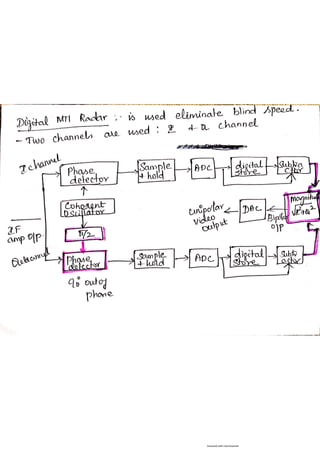 Digital MTI Radar :- is used eliminate blind speed.
- Two channels are used : I & Q channel
I channel
Phase detector
Sample + hold
ADC
digital store
Subtra ctor
Coherent Oscillator
π/2
IF amp o/p
Unipolar video output
DAC
Bipolar o/p
magnitude
Q channel
Phase detector
Sample + hold
ADC
digital store
Subtra actor
90° out of phase
Scanned with CamScanner